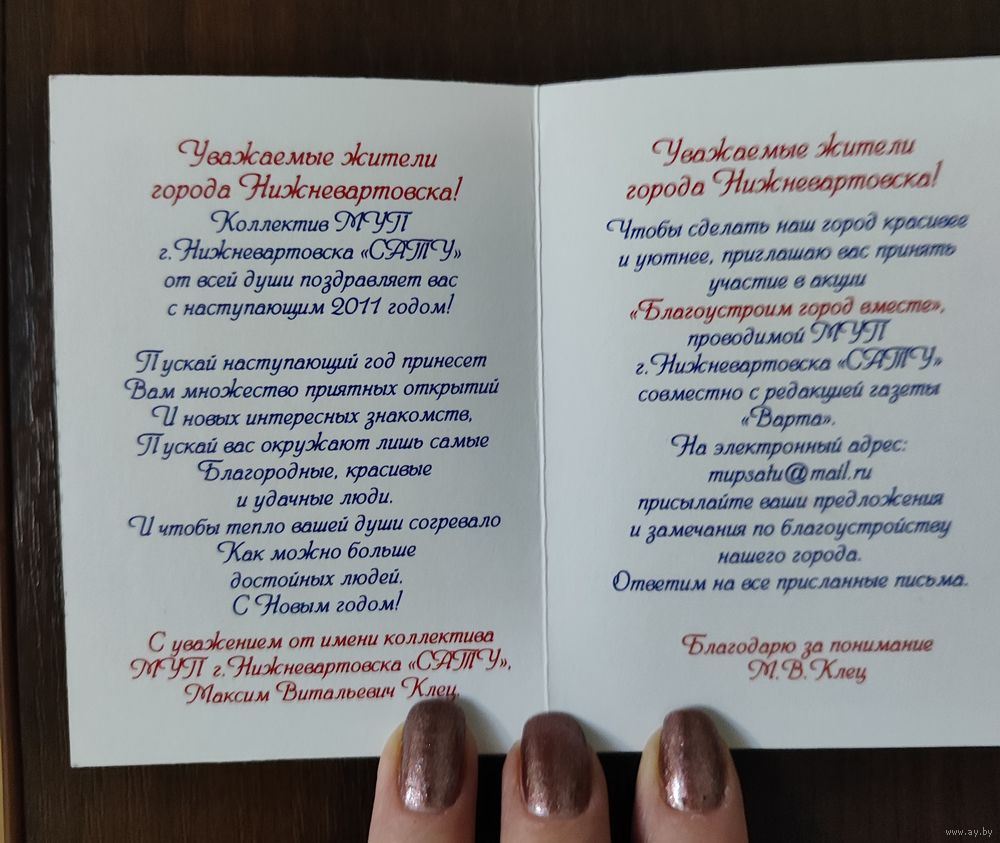 Уважаемые жители
города Нижневартовска!
Коллектив МУП
г.Нижневартовска «САТУ»
от всей души поздравляет вас
с наступающим 2011 годом!
Пускай наступающий год принесет
Вам множество приятных открытий
И новых интересных знакомств,
Пускай вас окружают лишь самые
Благородные, красивые
и удачные люди.
И чтобы тепло вашей души согревало
Как можно больше
достойных людей.
С Новым годом!
С уважением от имени коллектива
МУП г.Нижневартовска «САТУ»,
Максим Витальевич Клец.
Уважаемые жители
города Нижневартовска!
Чтобы сделать наш город красивее
и уютнее, приглашаю вас принять
участие в акции
«Благоустроим город вместе»,
проводимой МУП
г.Нижневартовска «САТУ»
совместно с редакцией газеты
«Варта».
На электронный адрес:
mupsatu@mail.ru
присылайте ваши предложения
и замечания по благоустройству
нашего города.
Ответим на все присланные письма.
Благодарю за понимание
М.В.Клец
www.ay.by